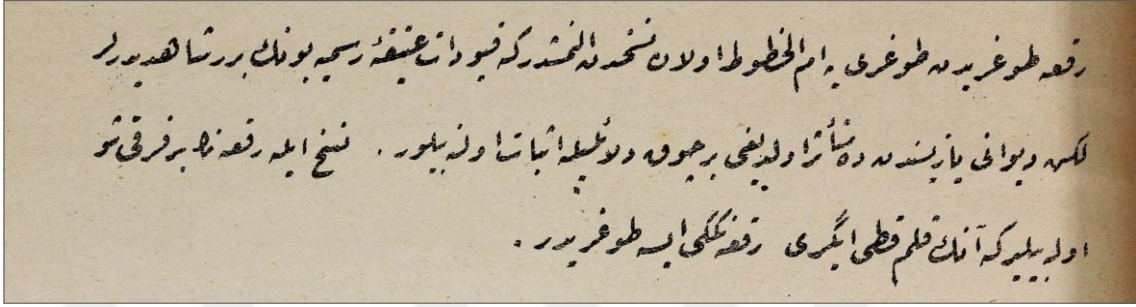 رقعه طوغريدن طوغرى يه ام الخطوط اولان نسخدن النمشدركه قيودات عتيقۀ رسميه بونك برر شاهديدرلر
لكن ديوانى يازيسندن ده متأثر اولديغى بر چوق دلائليله اثبات اولنه بيلور . نسخ ايله رقعه نك بر فرقى شو
اوله بيلير كه آنك قلم قطى اگرى رقعه نككى ايسه طوغريدر .